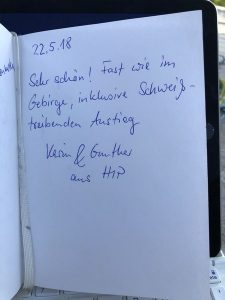 22.5.18
Sehr schön! Fast wie im
Gebirge, inklusive Schweiß-
treibenden Anstieg
Karin & Günther
aus HIP